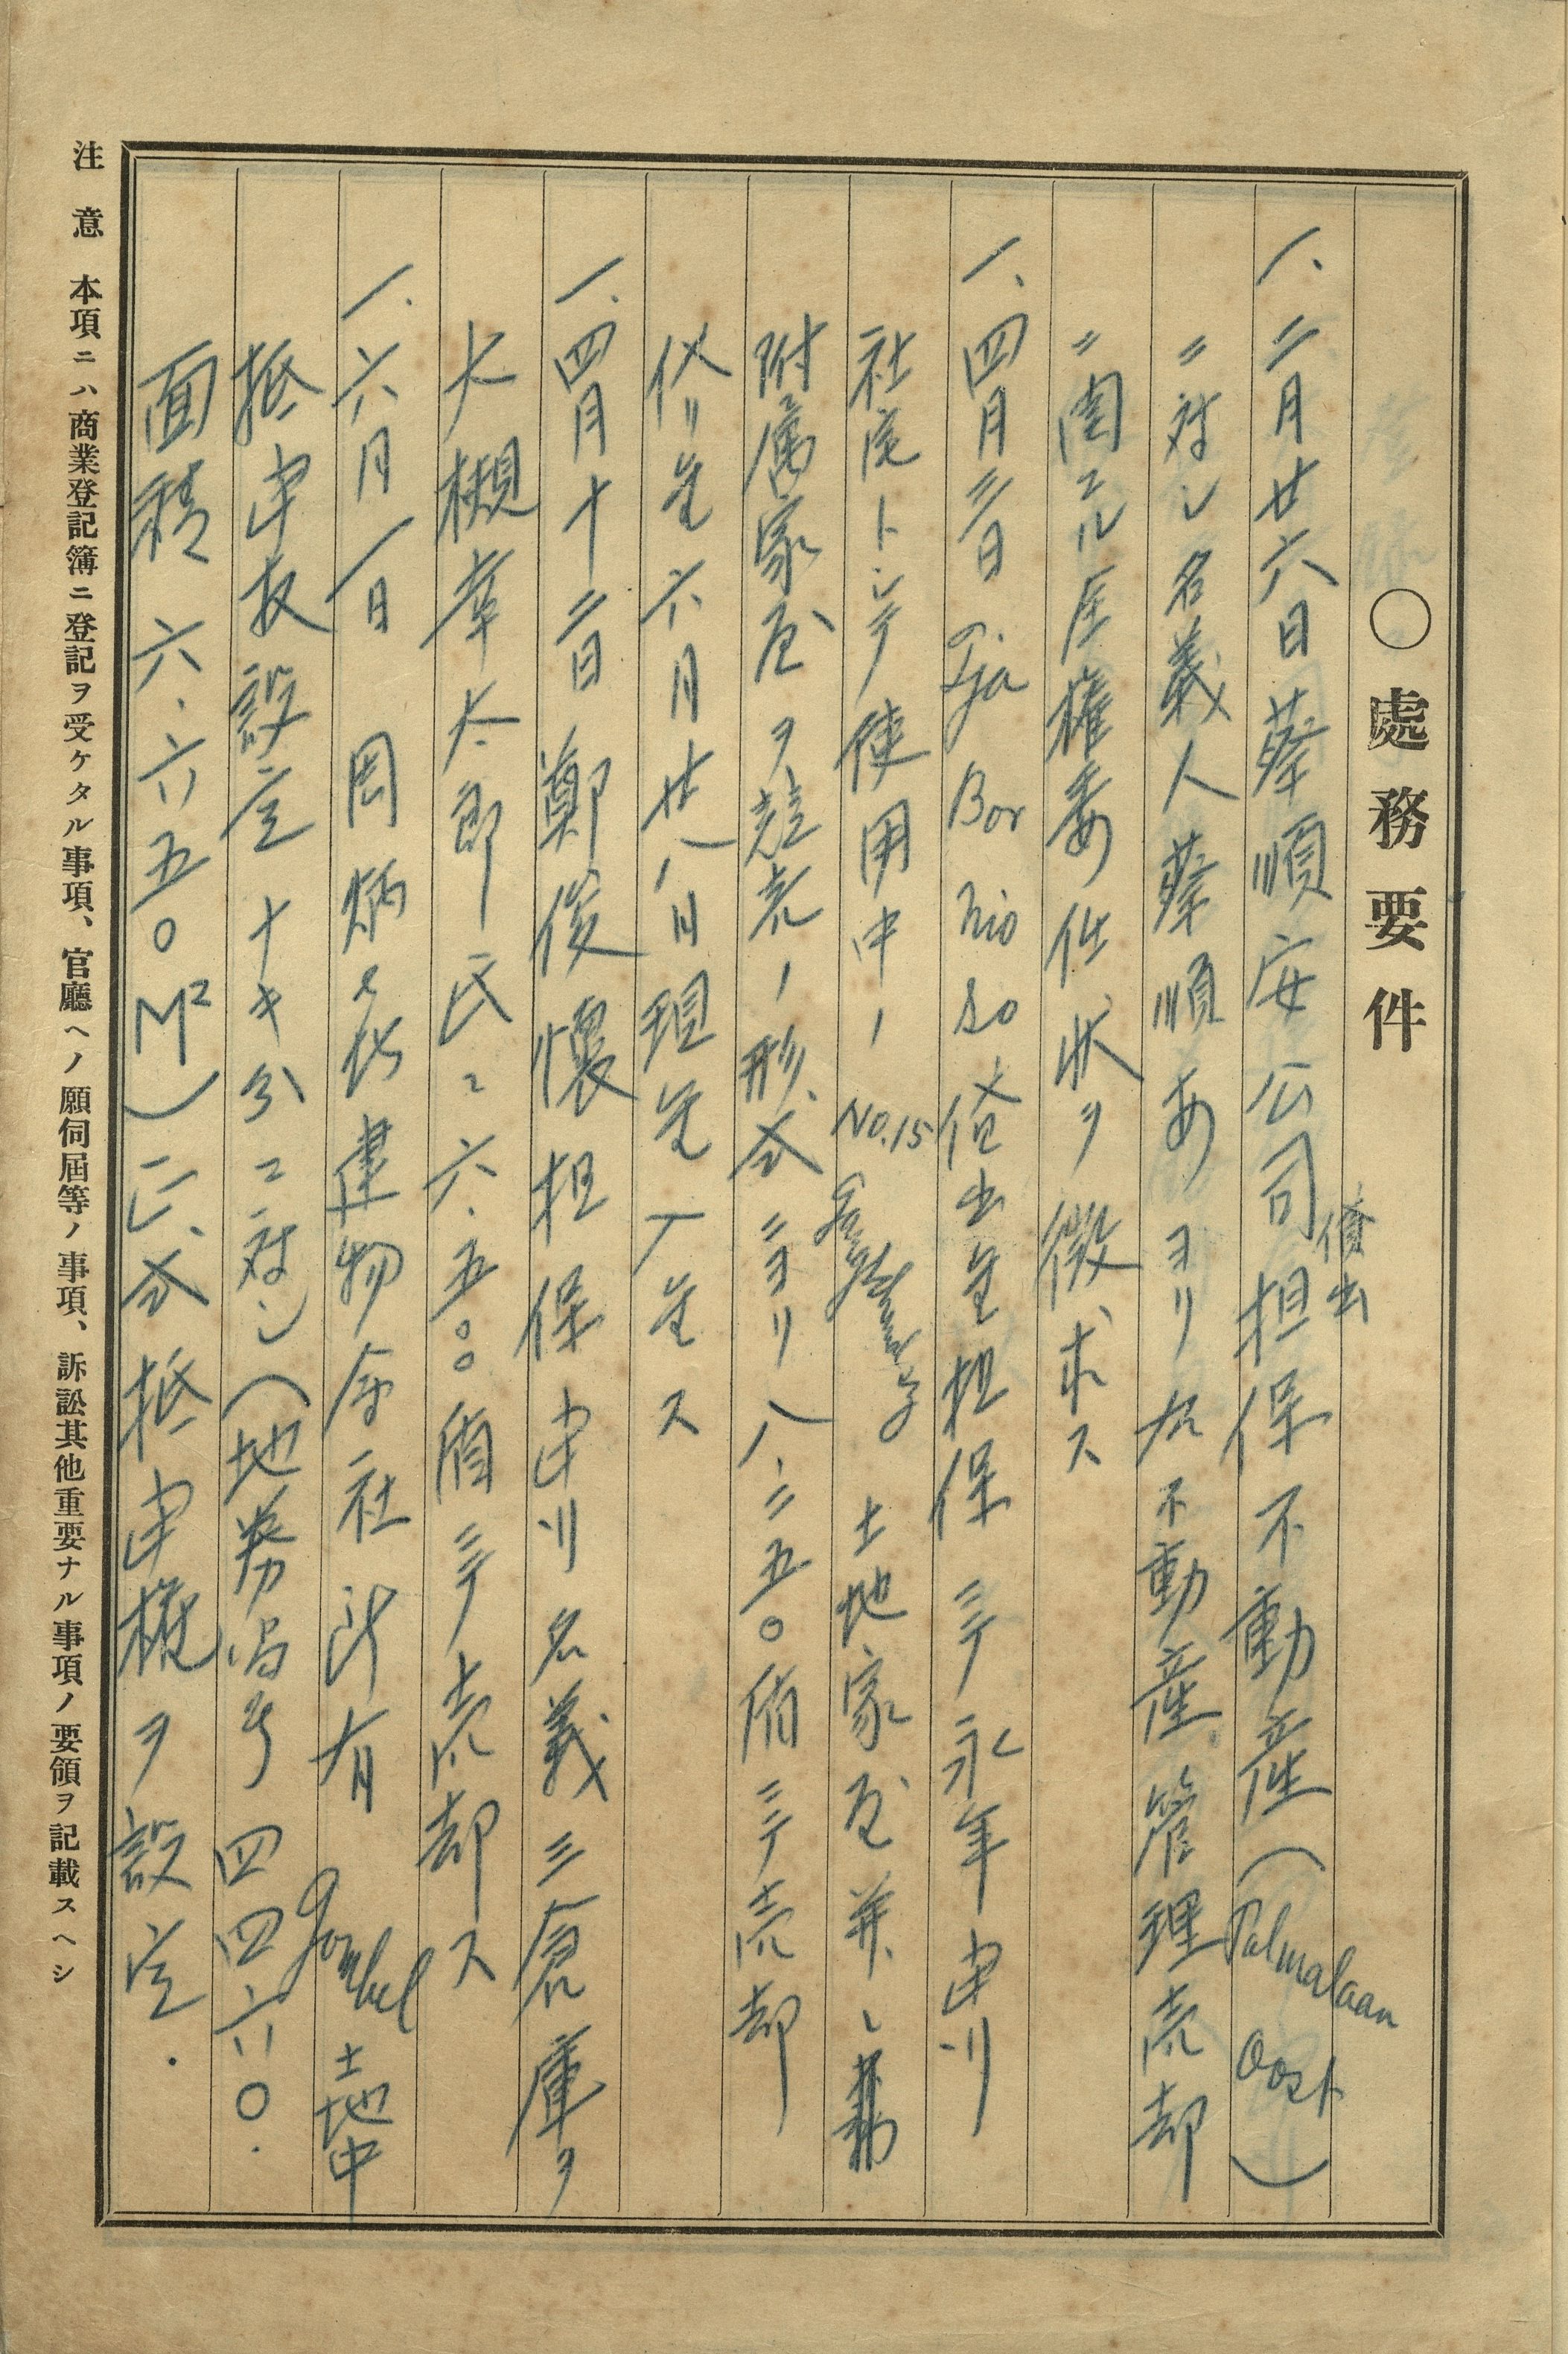 ○處務要件
一、二月廿六日蔡順安公司貸出担保不動産（Palmalaan Oost）
ニ対シ名義人蔡順あヨリ右不動産管理売却
ニ関スル全権委任状ヲ徴求ス
一、四月三日 Tja Bor Nio So 貸出金担保ニテ永年中川
社宅トシテ使用中ノ No.15 土地家屋並ニ
附属家屋ヲ競売ノ形式ニヨリ八、二五〇盾ニテ売却
代リ金六月廿八日現金入金ス
一、四月十二日鄭俊懐担保中川名義ニ倉庫ヲ
大槻幸太郎氏ニ六、五〇〇盾ニテ売却ス
一、六月一日 周炳喜建物会社所有 Gombel 土地中
抵当友設定ナキ分ニ対シ（地券番号四四六〇．
面積六、六五〇M²）正式抵当権ヲ設定．
注意　本項ニハ商業登記簿ニ登記ヲ受ケタル事項、官廳ヘノ願伺屆等ノ事項、訴訟其他重要ナル事項ノ要領ヲ記載スヘシ